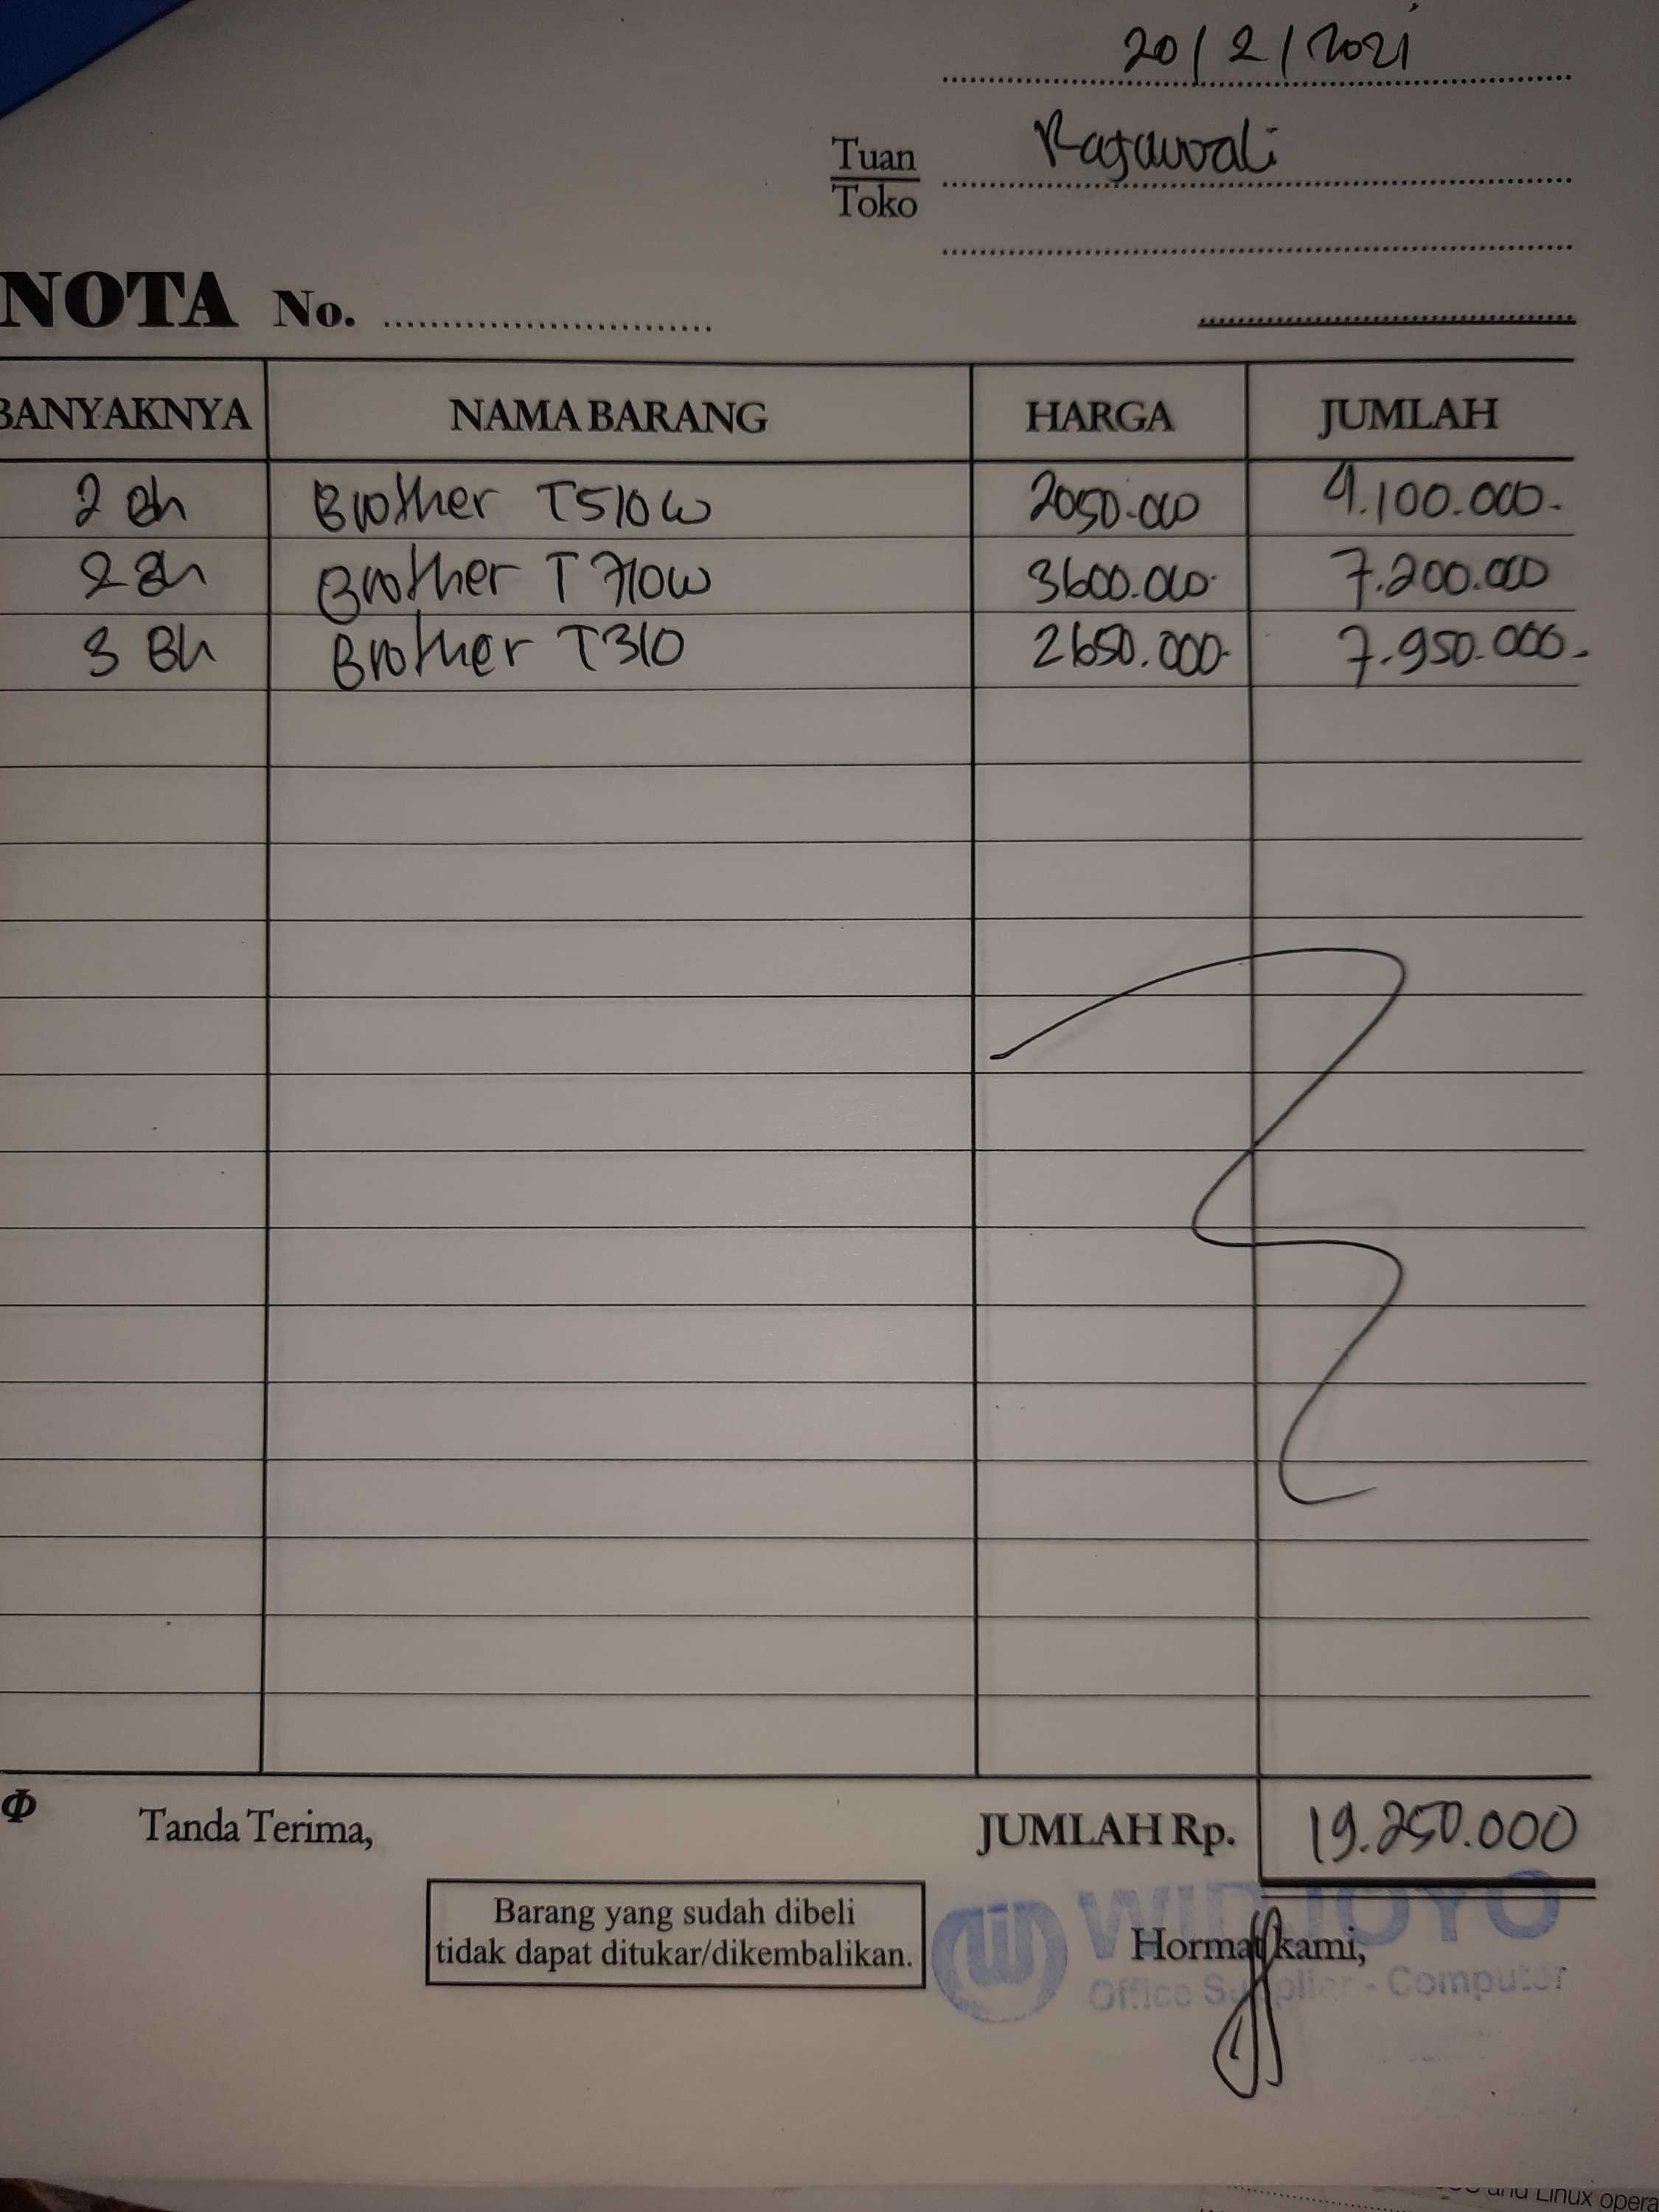 20/2/2021
Tuan Rajawali
Toko
NOTA No.
BANYAKNYA NAMA BARANG HARGA JUMLAH
2 Bh Brother T510W 2050.000 4.100.000.
2 Bh Brother T710W 3600.000 7.200.000
3 Bh Brother T310 2650.000 7.950.000.
Tanda Terima, JUMLAH Rp. 19.250.000
Barang yang sudah dibeli
tidak dapat ditukar/dikembalikan.
WIDJOYO
Hormat kami,
Office Supplier - Computer
and Linux opera